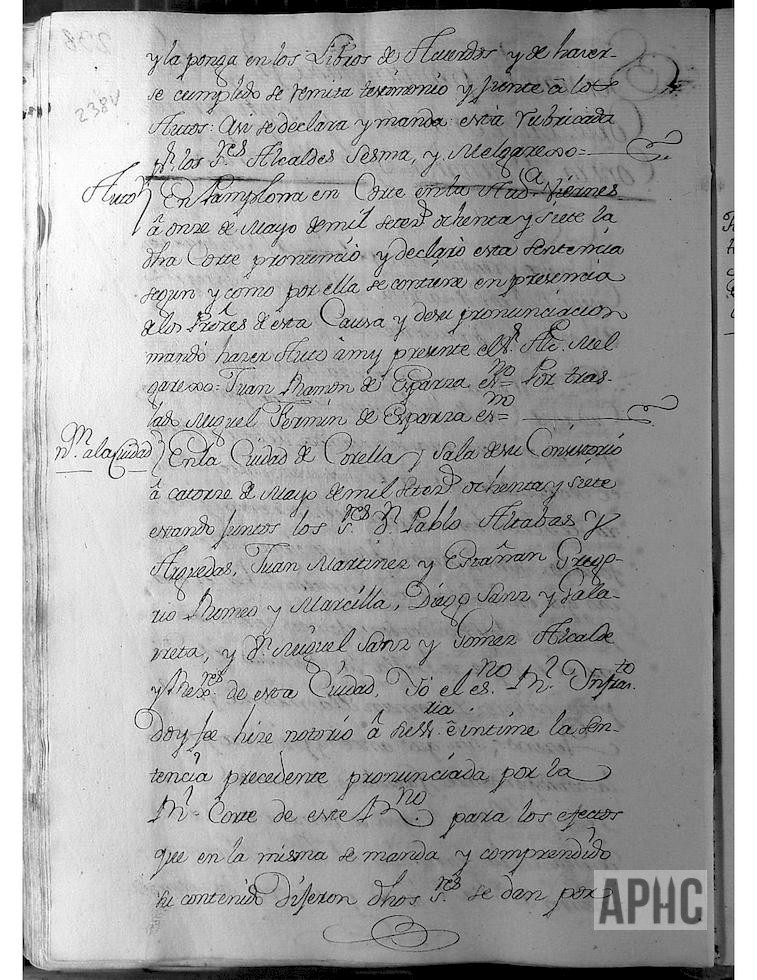 238v
y la ponga en los Libros de Acuerdos y de haver-
se cumplido se remita testimonio y junte a los
Autos: Asi se declara y manda: está rubricada
pr. los Sres. Alcaldes Sesma, y Melgarexo=
Auto) En Pamplona en Corte en la Auda. Viernes
â onze de Mayo de mil seteztos. ochenta y siete la
dha Corte pronunció y declaró esta sentencia
segun y como por ella se contiene en presencia
de los Prôres de esta Causa y de su pronunciacion
mandó hazer Auto â my presente el Sr. Alc. Mel
garexo: Juan Ramon de Esparza esno= Por tras-
lado Miguel Fermin de Esparza esno=
nn. a la Ciudad) En la Ciudad de Corella y Sala de su Consistorio
â catorze de Mayo de mil seteztos. ochenta y siete
estando juntos los Sres. Dn. Pablo Altabas y
Arguedas, Juan Martinez y Estañan Grego-
rio Romeo y Marcilla, Diego Sanz y Gala-
rreta, y Dn. Miguel Sanz y Gomez Alcalde
y Rexres. de esta Ciudad, Yó el esno Rl. Infrasto.
Doy fee hize notorio â su Sria. ê intime la sen-
tencia precedente pronunciada por la
Rl. Corte de este Rno. para los efectos
que en la misma se manda y comprendido
su contenido Dijeron dhos Sres. se dan por
APHC